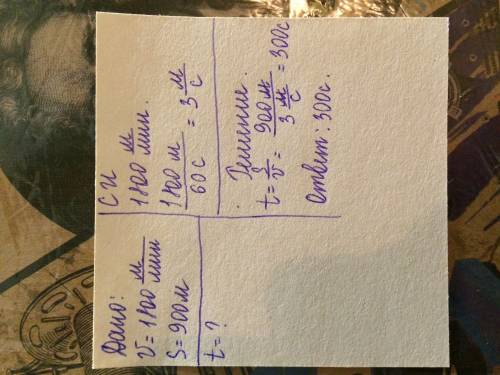 Дано:
v = 1800 м/мин
S = 900 м
t = ?
СИ
1800 м/мин.
1800 м/60 с = 3 м/с
Решение.
t = S/v = 900 м/3 м/с = 300 с
Ответ: 300 с.